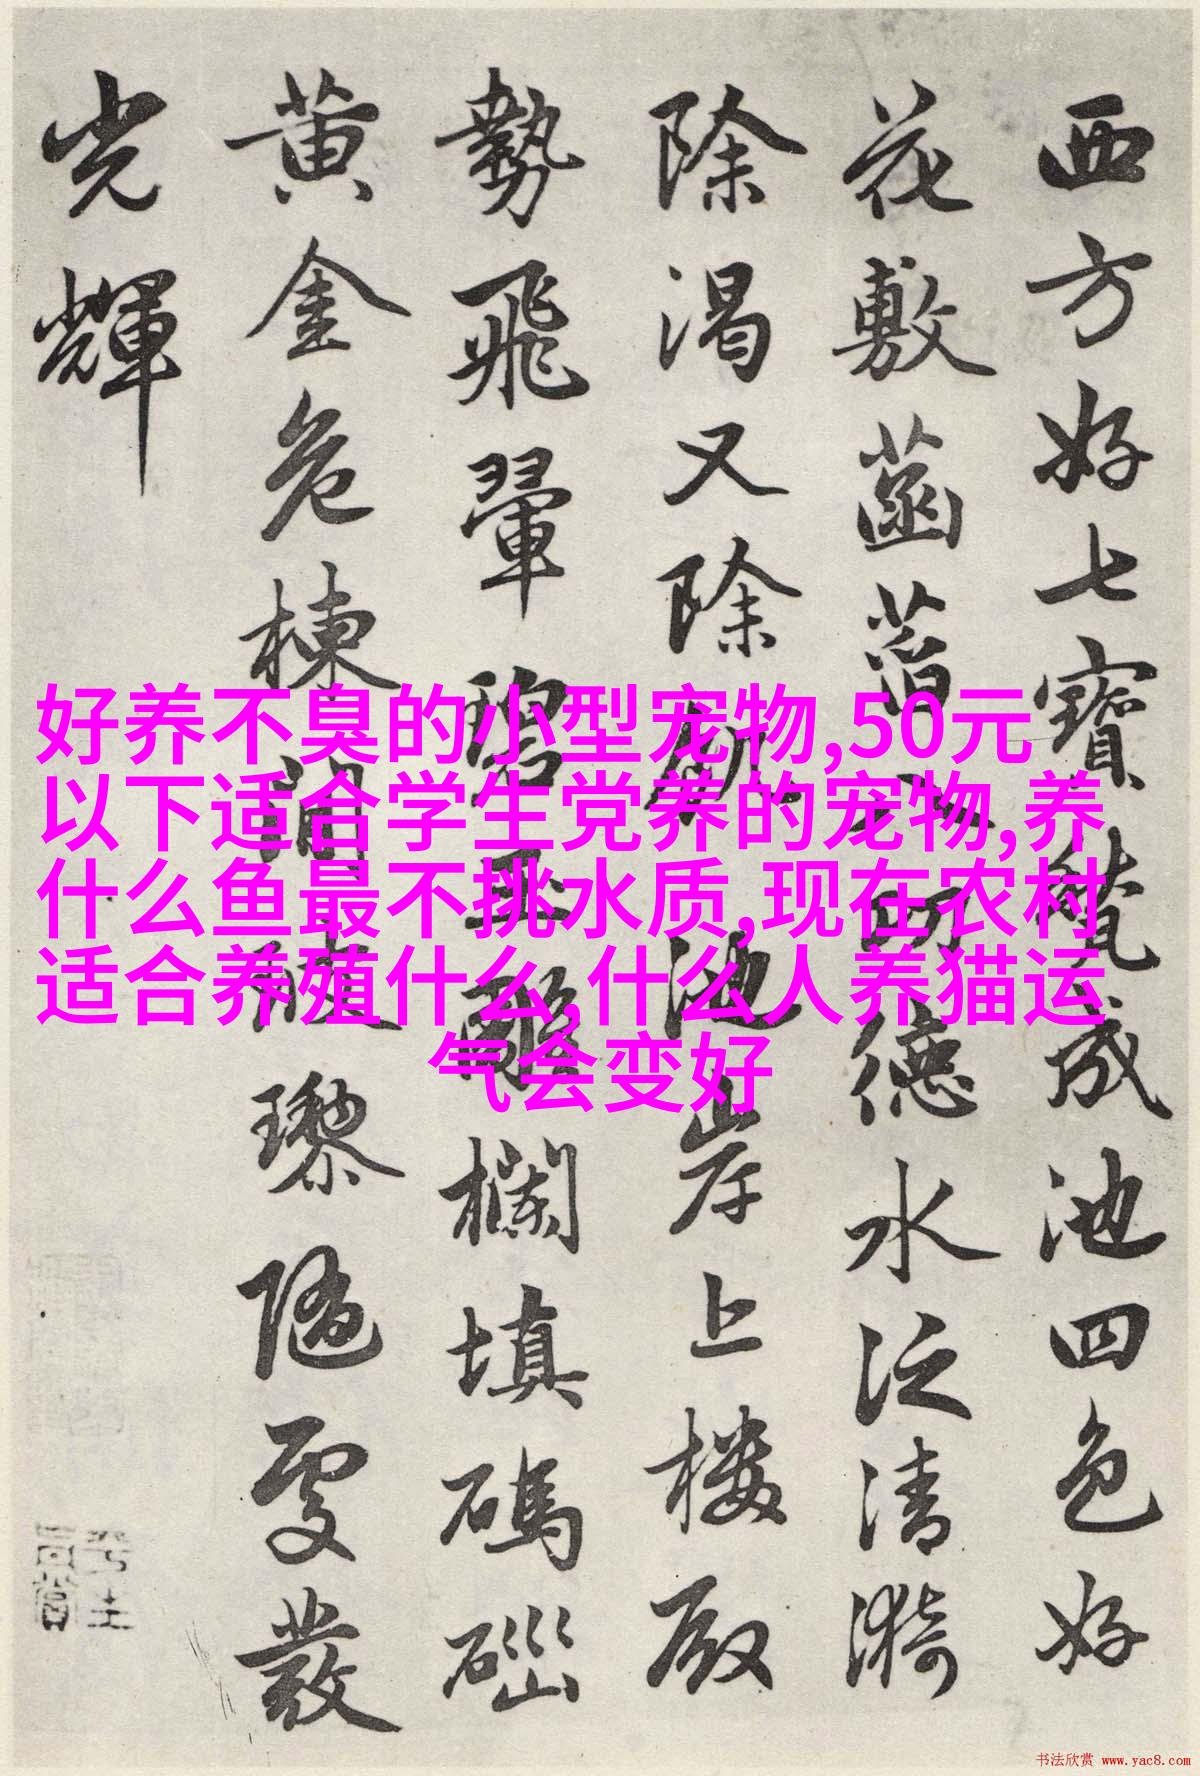 西方好七寶甃成池四色好
花敷菡萏八功德水泛清漪
除渴又除飢池岸上楼殿
勢飛翬碧玉雕欄填碼碯
黄金危棟間玻瓈隨處發
光輝
好养不臭的小型宠物,50元
以下适合学生党养的宠物,养
什么鱼最不挑水质,现在农村
适合养殖什么,什么人养猫运
气会变好
书法欣赏 www.yac8.com